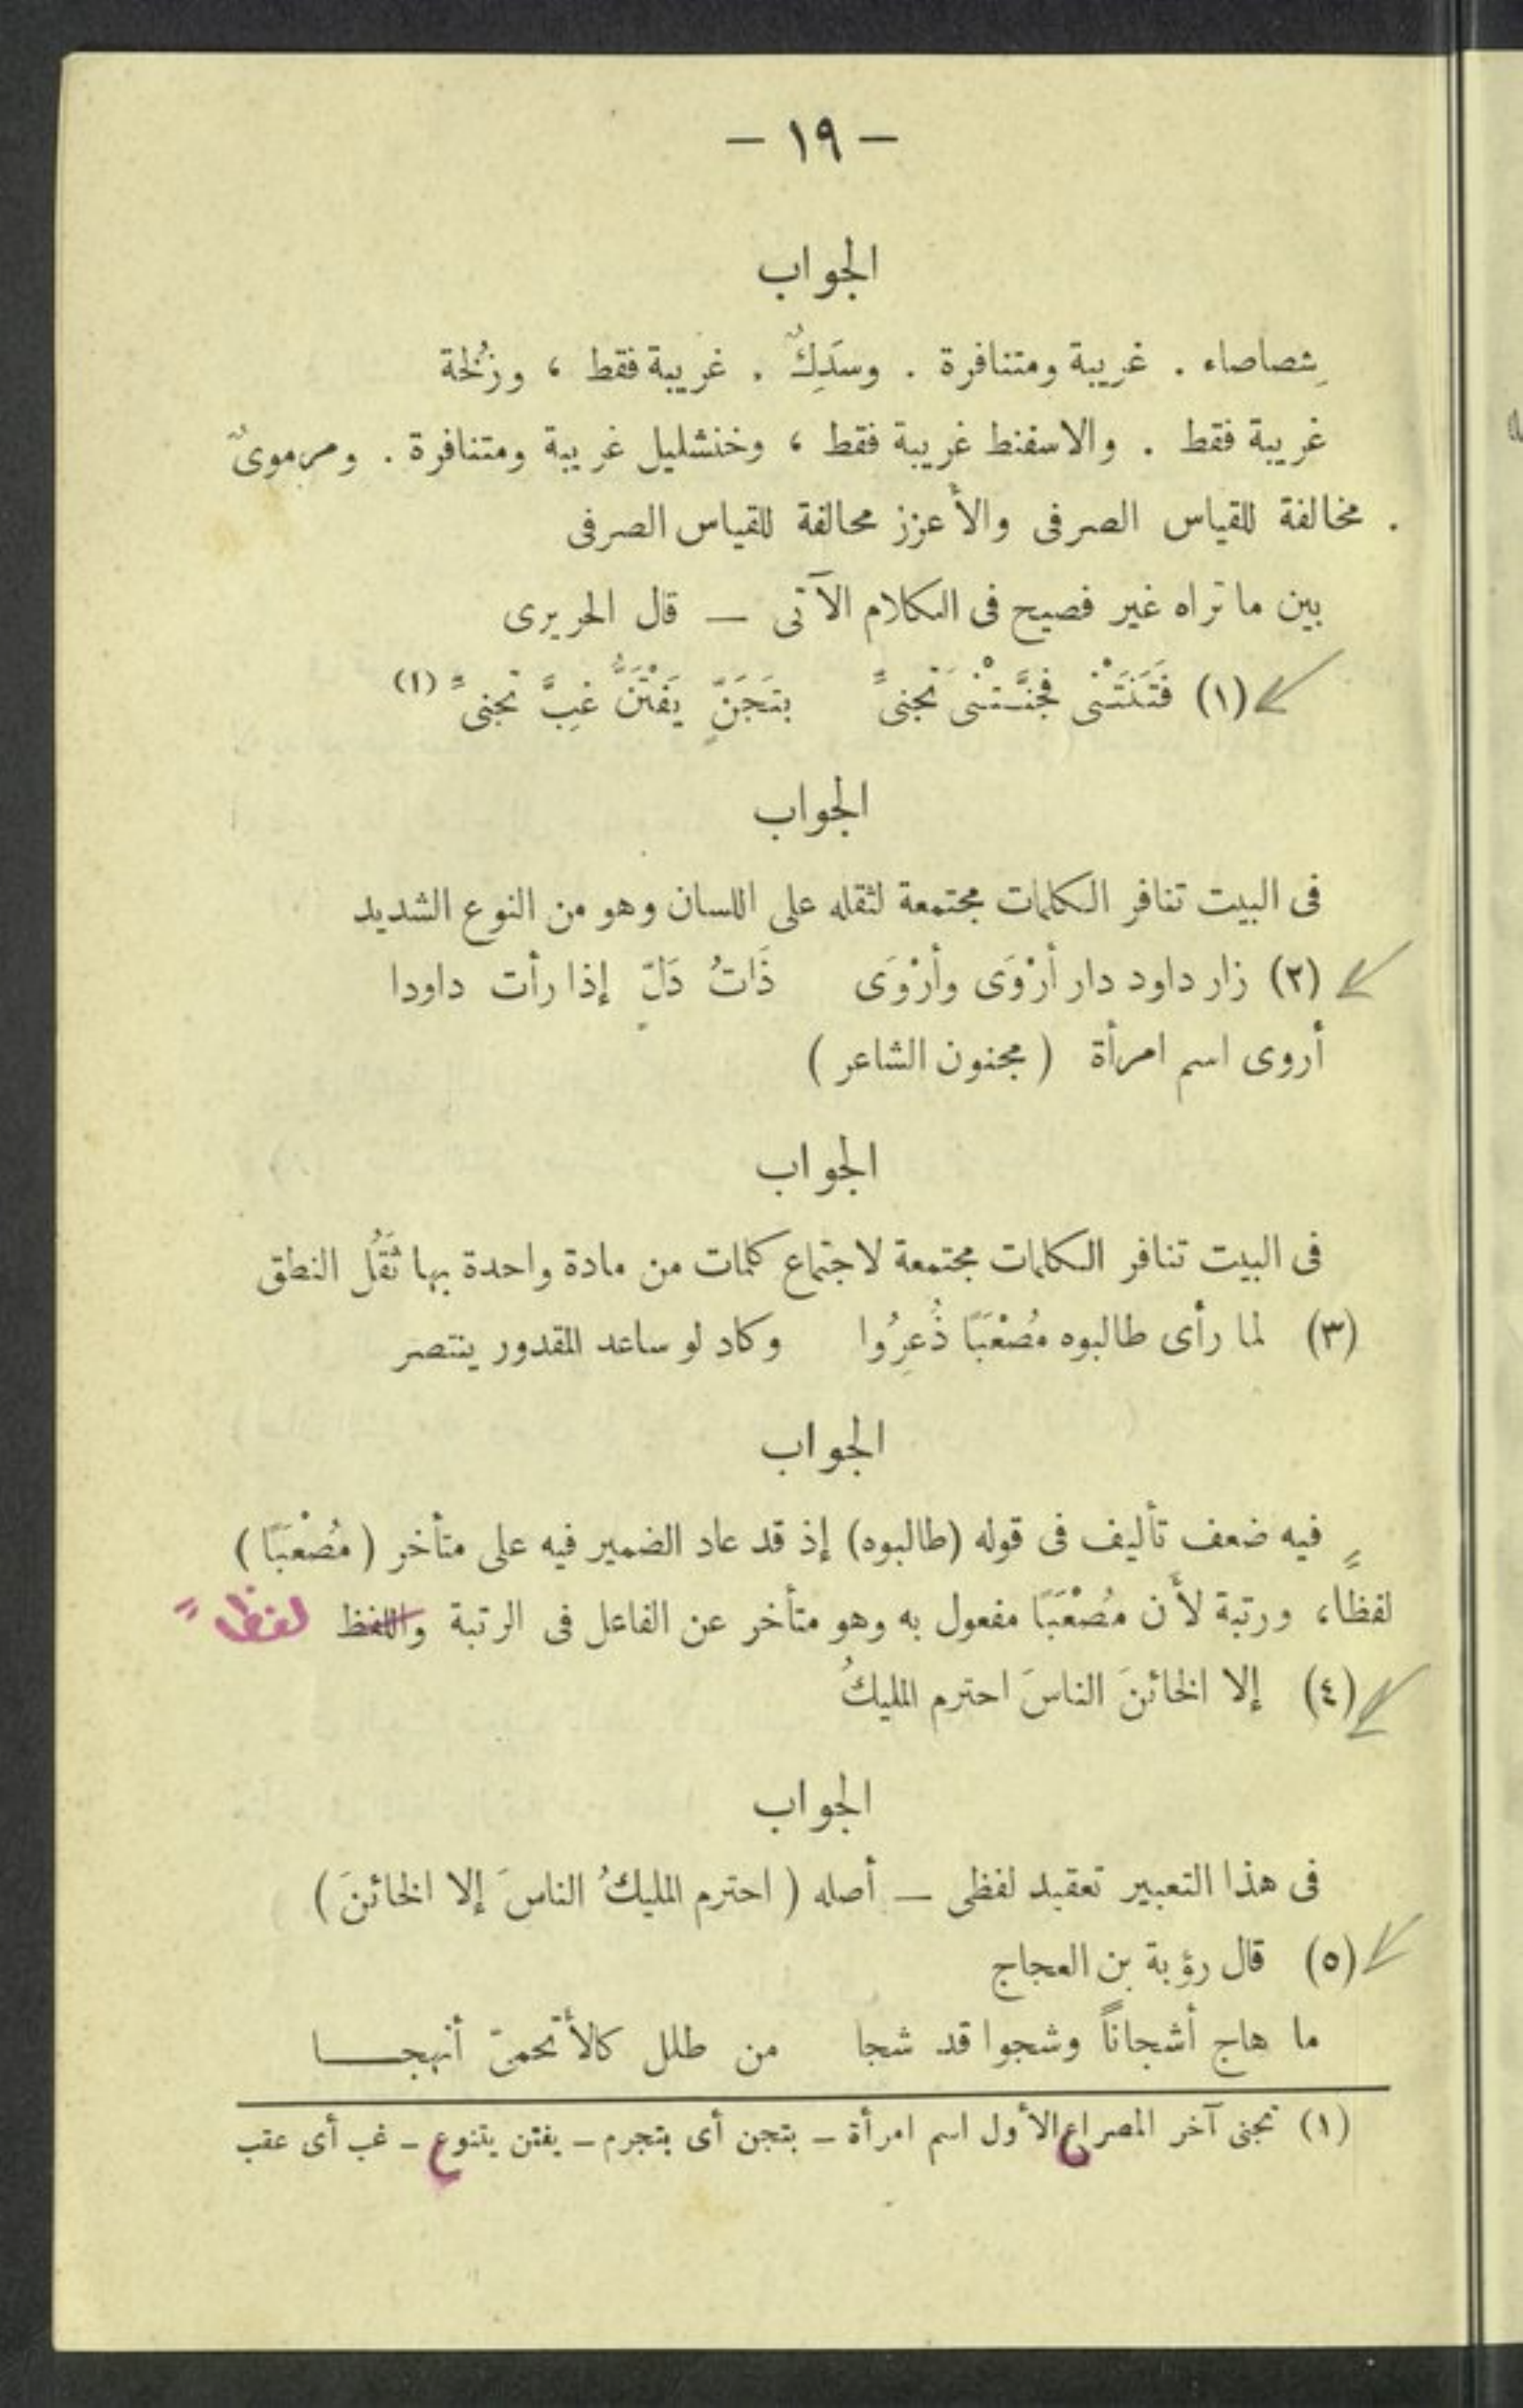 — ١٩ —
الجواب
شصاصاء . غريبة ومتنافرة . وسَدِكٌ . غريبة فقط ، وزُلخة
غريبة فقط . والاسفنط غريبة فقط ، وخنشليل غريبة ومتنافرة . ومرموىٌ
. مخالفة للقياس الصرفى والأعزز محالفة للقياس الصرفى
بين ما تراه غير فصيح فى الكلام الآتى — قال الحريرى
(١) فَتَنَتْنى فجنَّـتْنى تَجنىًّ بتَجَنّ يَفْتَنُّ غِبَّ تجنىًّ (١)
الجواب
فى البيت تنافر الكلمات مجتمعة لثقله على اللسان وهو من النوع الشديد
(٢) زار داود دار أرْوَى وأرْوَى ذَاتُ دَلّ إذا رأت داودا
أروى اسم امرأة ( مجنون الشاعر )
الجواب
فى البيت تنافر الكلمات مجتمعة لاجتماع كلمات من مادة واحدة بها ثَقُل النطق
(٣) لما رأى طالبوه مُصْعَبًا ذُعِرُوا وكاد لو ساعد المقدور ينتصر
الجواب
فيه ضعف تأليف فى قوله (طالبوه) إذ قد عاد الضمير فيه على متأخر ( مُصْعَبًا )
لفظًا، ورتبة لأن مُصْعَبًا مفعول به وهو متأخر عن الفاعل فى الرتبة واللفظ لفظاً
(٤) إلا الخائنَ الناسَ احترم المليكُ
الجواب
فى هذا التعبير تعقيد لفظى — أصله ( احترم المليكُ الناسَ إلا الخائنَ )
(٥) قال رؤبة بن العجاج
ما هاج أشجاناً وشجوا قد شجا من طلل كالأتحمىّ أنهجـــا
(١) تجنى آخر المصراع الأول اسم امرأة — بتجن أى بتجرم — يفتن يتنوع — غب أى عقب